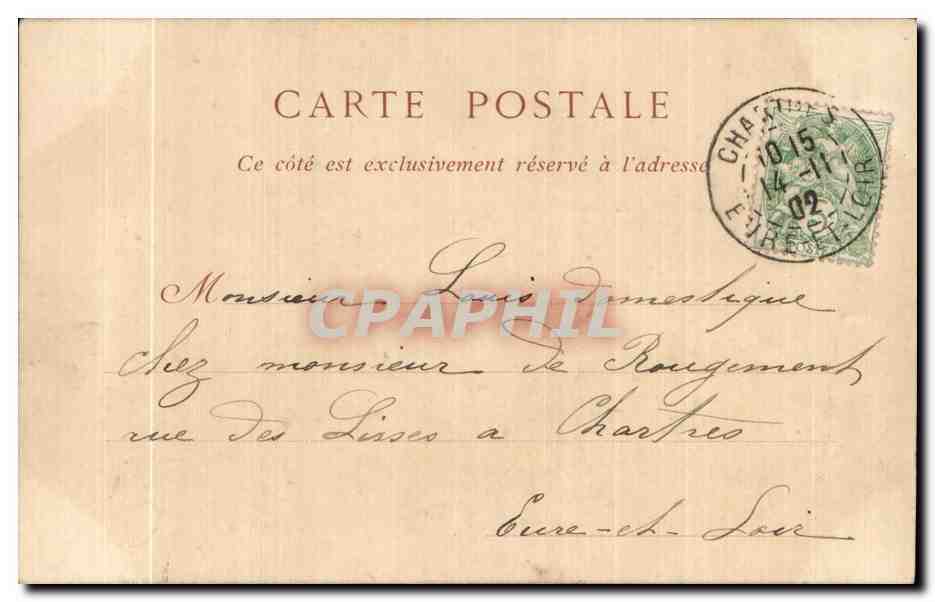 CARTE POSTALE
Ce côté est exclusivement réservé à l'adresse
CHARTRES
10 15
14 -11
02
EURE-ET-LOIR
Monsieur Louis domestique
CPAPHIL
chez monsieur de Rougemont
rue des Lisses a Chartres
Eure-et-Loir